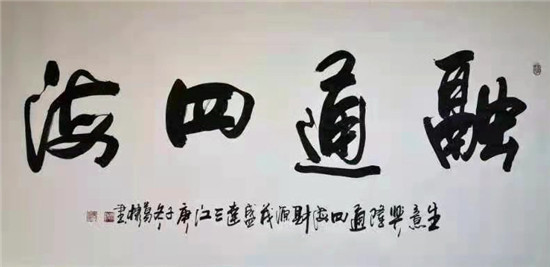 融通四海
生意兴隆通四海财源茂盛达三江庚子冬